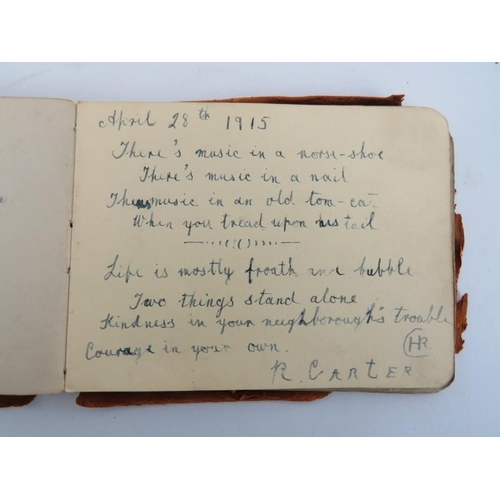 April 28th 1915
There's music in a norse-shoe
There's music in a nail
Theres music in an old tom-cat
When you tread upon his tail
Life is mostly froath and bubble
Two things stand alone
Kindness in your neighborough's trouble
Courage in your own.
HR
R. CARTER